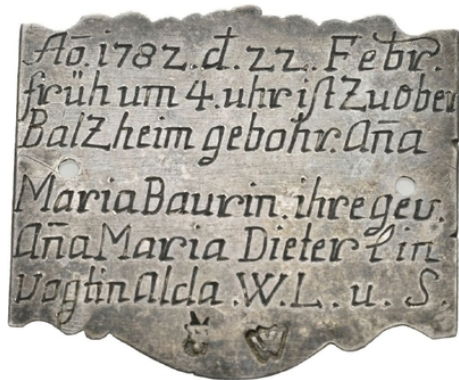 Aō. 1782. d. 22. Febr.
früh um 4. uhr ist Zu ober
BalZheim gebohr. Aña
Maria Baurin. ihre gev.
Aña Maria Dieterlin
Vogtin Alda. W. L. u. S.